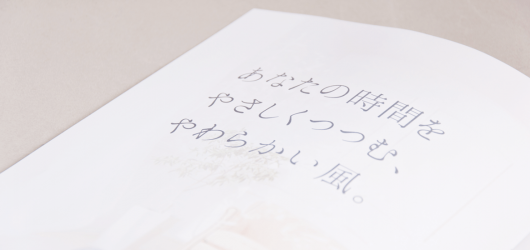 あなたの時間を
やさしくつつむ、
やわらかい風。